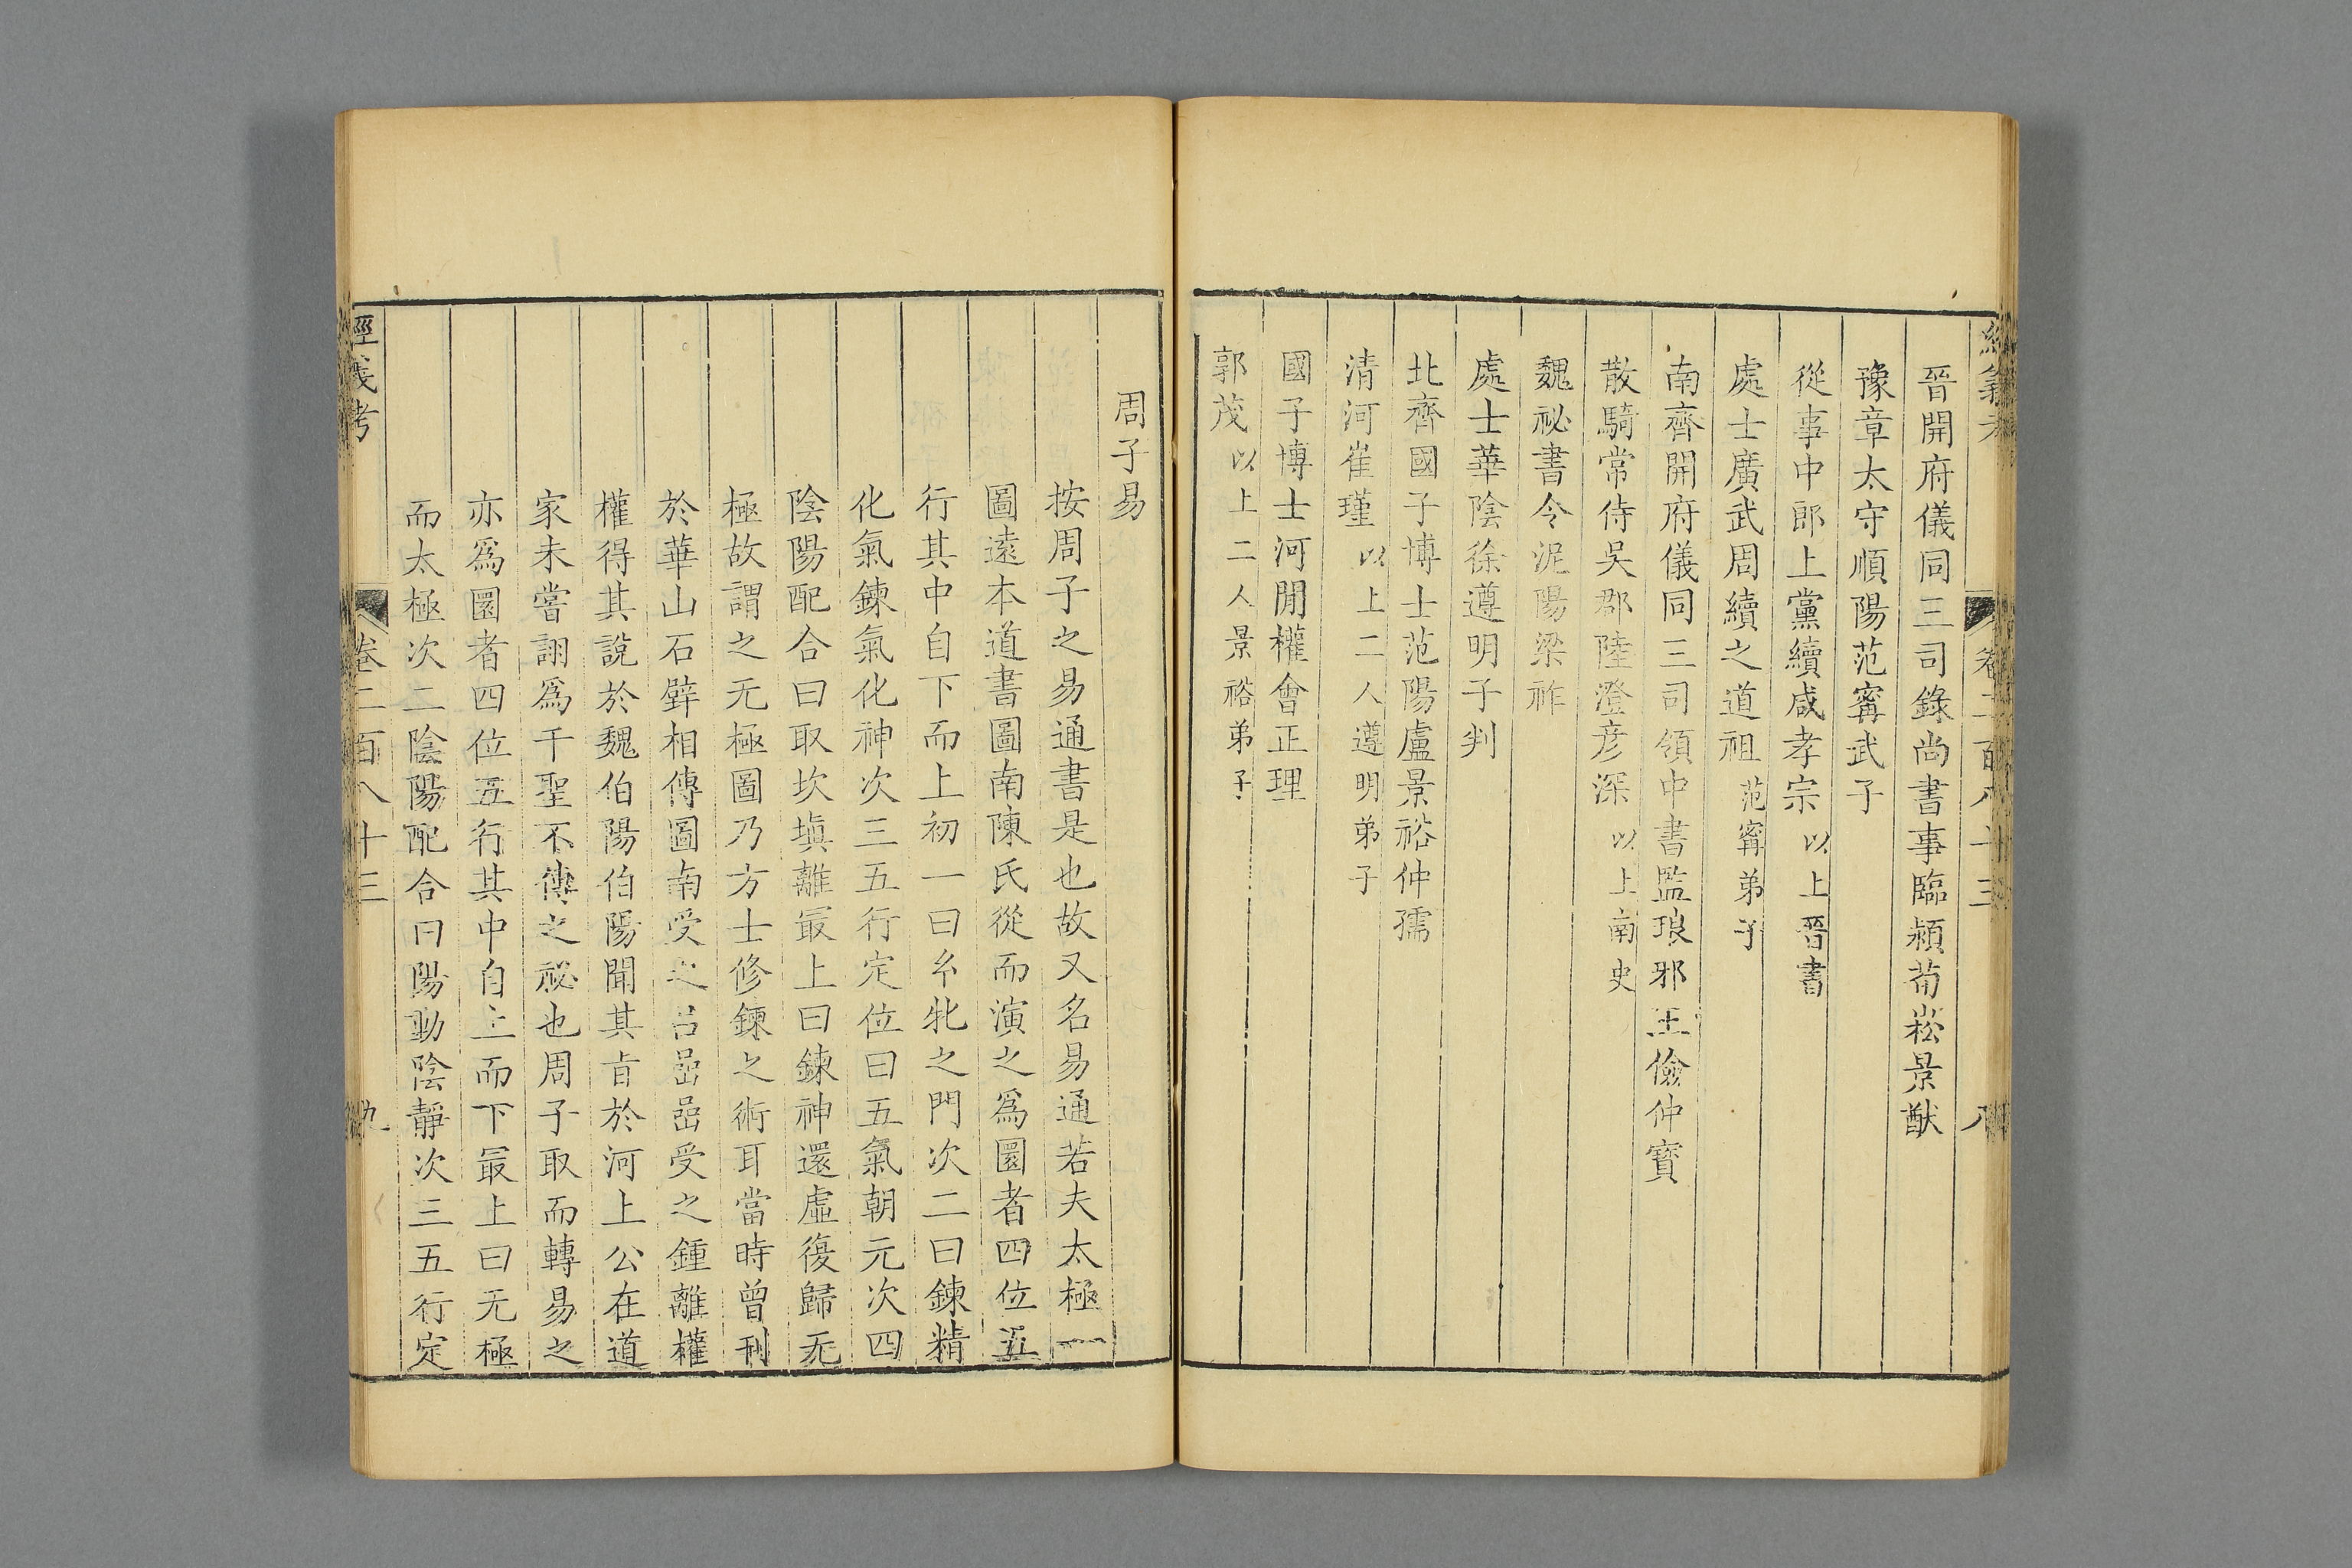 經義考
卷二百八十三
八
晉開府儀同三司錄尚書事臨潁荀崧景猷
豫章太守順陽范甯武子
從事中郎上黨續咸孝宗以上晉書
處士廣武周續之道祖范甯弟子
南齊開府儀同三司領中書監琅邪王儉仲寶
散騎常侍吳郡陸澄彥深以上南史
魏祕書令泥陽梁祚
處士華陰徐遵明子判
北齊國子博士范陽盧景裕仲孺
清河崔瑾以上二人遵明弟子
國子博士河閒權會正理
郭茂以上二人景裕弟子
周子易
按周子之易通書是也故又名易通若夫太極一
圖遠本道書圖南陳氏從而演之爲圜者四位五
行其中自下而上初一曰玄牝之門次二曰鍊精
化氣鍊氣化神次三五行定位曰五氣朝元次四
陰陽配合曰取坎塡離最上曰鍊神還虛復歸无
極故謂之无極圖乃方士修鍊之術耳當時曾刊
於華山石壁相傳圖南受之呂嵒嵒受之鍾離權
權得其說於魏伯陽伯陽聞其旨於河上公在道
家未嘗詡爲千聖不傳之祕也周子取而轉易之
亦爲圜者四位五行其中自上而下最上曰无極
而太極次二陰陽配合曰陽動陰靜次三五行定
經義考
卷二百八十三
九